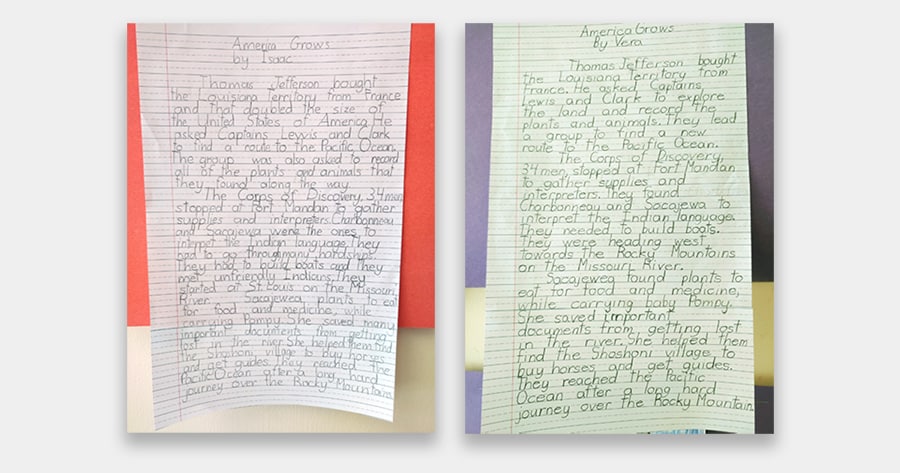 America Grows
by Isaac
Thomas Jefferson bought
the Louisiana Territory from France
and that doubled the size of
the United States of America. He
asked Captains Lewis and Clark
to find a route to the Pacific Ocean.
The group was also asked to record
all of the plants and animals that
they found along the way.
The Corps of Discovery, 34 men,
stopped at Fort Mandan to gather
supplies and interpreters. Charbonneau
and Sacajewa were the ones to
interpret the Indian language. They
had to go through many hardships.
They had to build boats and they
met unfriendly Indians. They
started at St Louis on the Missouri
River. Sacajewea plants to eat
for food and medicine, while
carrying Pompy. She saved many
important documents from getting
lost in the river. She helped them find
the Shoshoni village to buy horses
and get guides. They reached the
Pacific Ocean after a long hard
journey over the Rocky Mountains.
America Grows
By Vera
Thomas Jefferson bought
the Louisiana Territory from
France. He asked Captains
Lewis and Clark to explore
the land and record the
plants and animals. They lead
a group to find a new
route to the Pacific Ocean.
The Corps of Discovery,
34 men, stopped at Fort Mandan
to gather supplies and
interpreters. They found
Charbonneau and Sacajewa to
interpret the Indian language.
They needed to build boats.
They were heading west
towards the Rocky Mountains
on the Missouri River.
Sacajewea found plants to
eat for food and medicine,
while carrying baby Pompy.
She saved important
documents from getting lost
in the river. She helped them
find the Shoshoni village to
buy horses and get guides.
They reached the Pacific
Ocean after a long hard
journey over the Rocky Mountain.